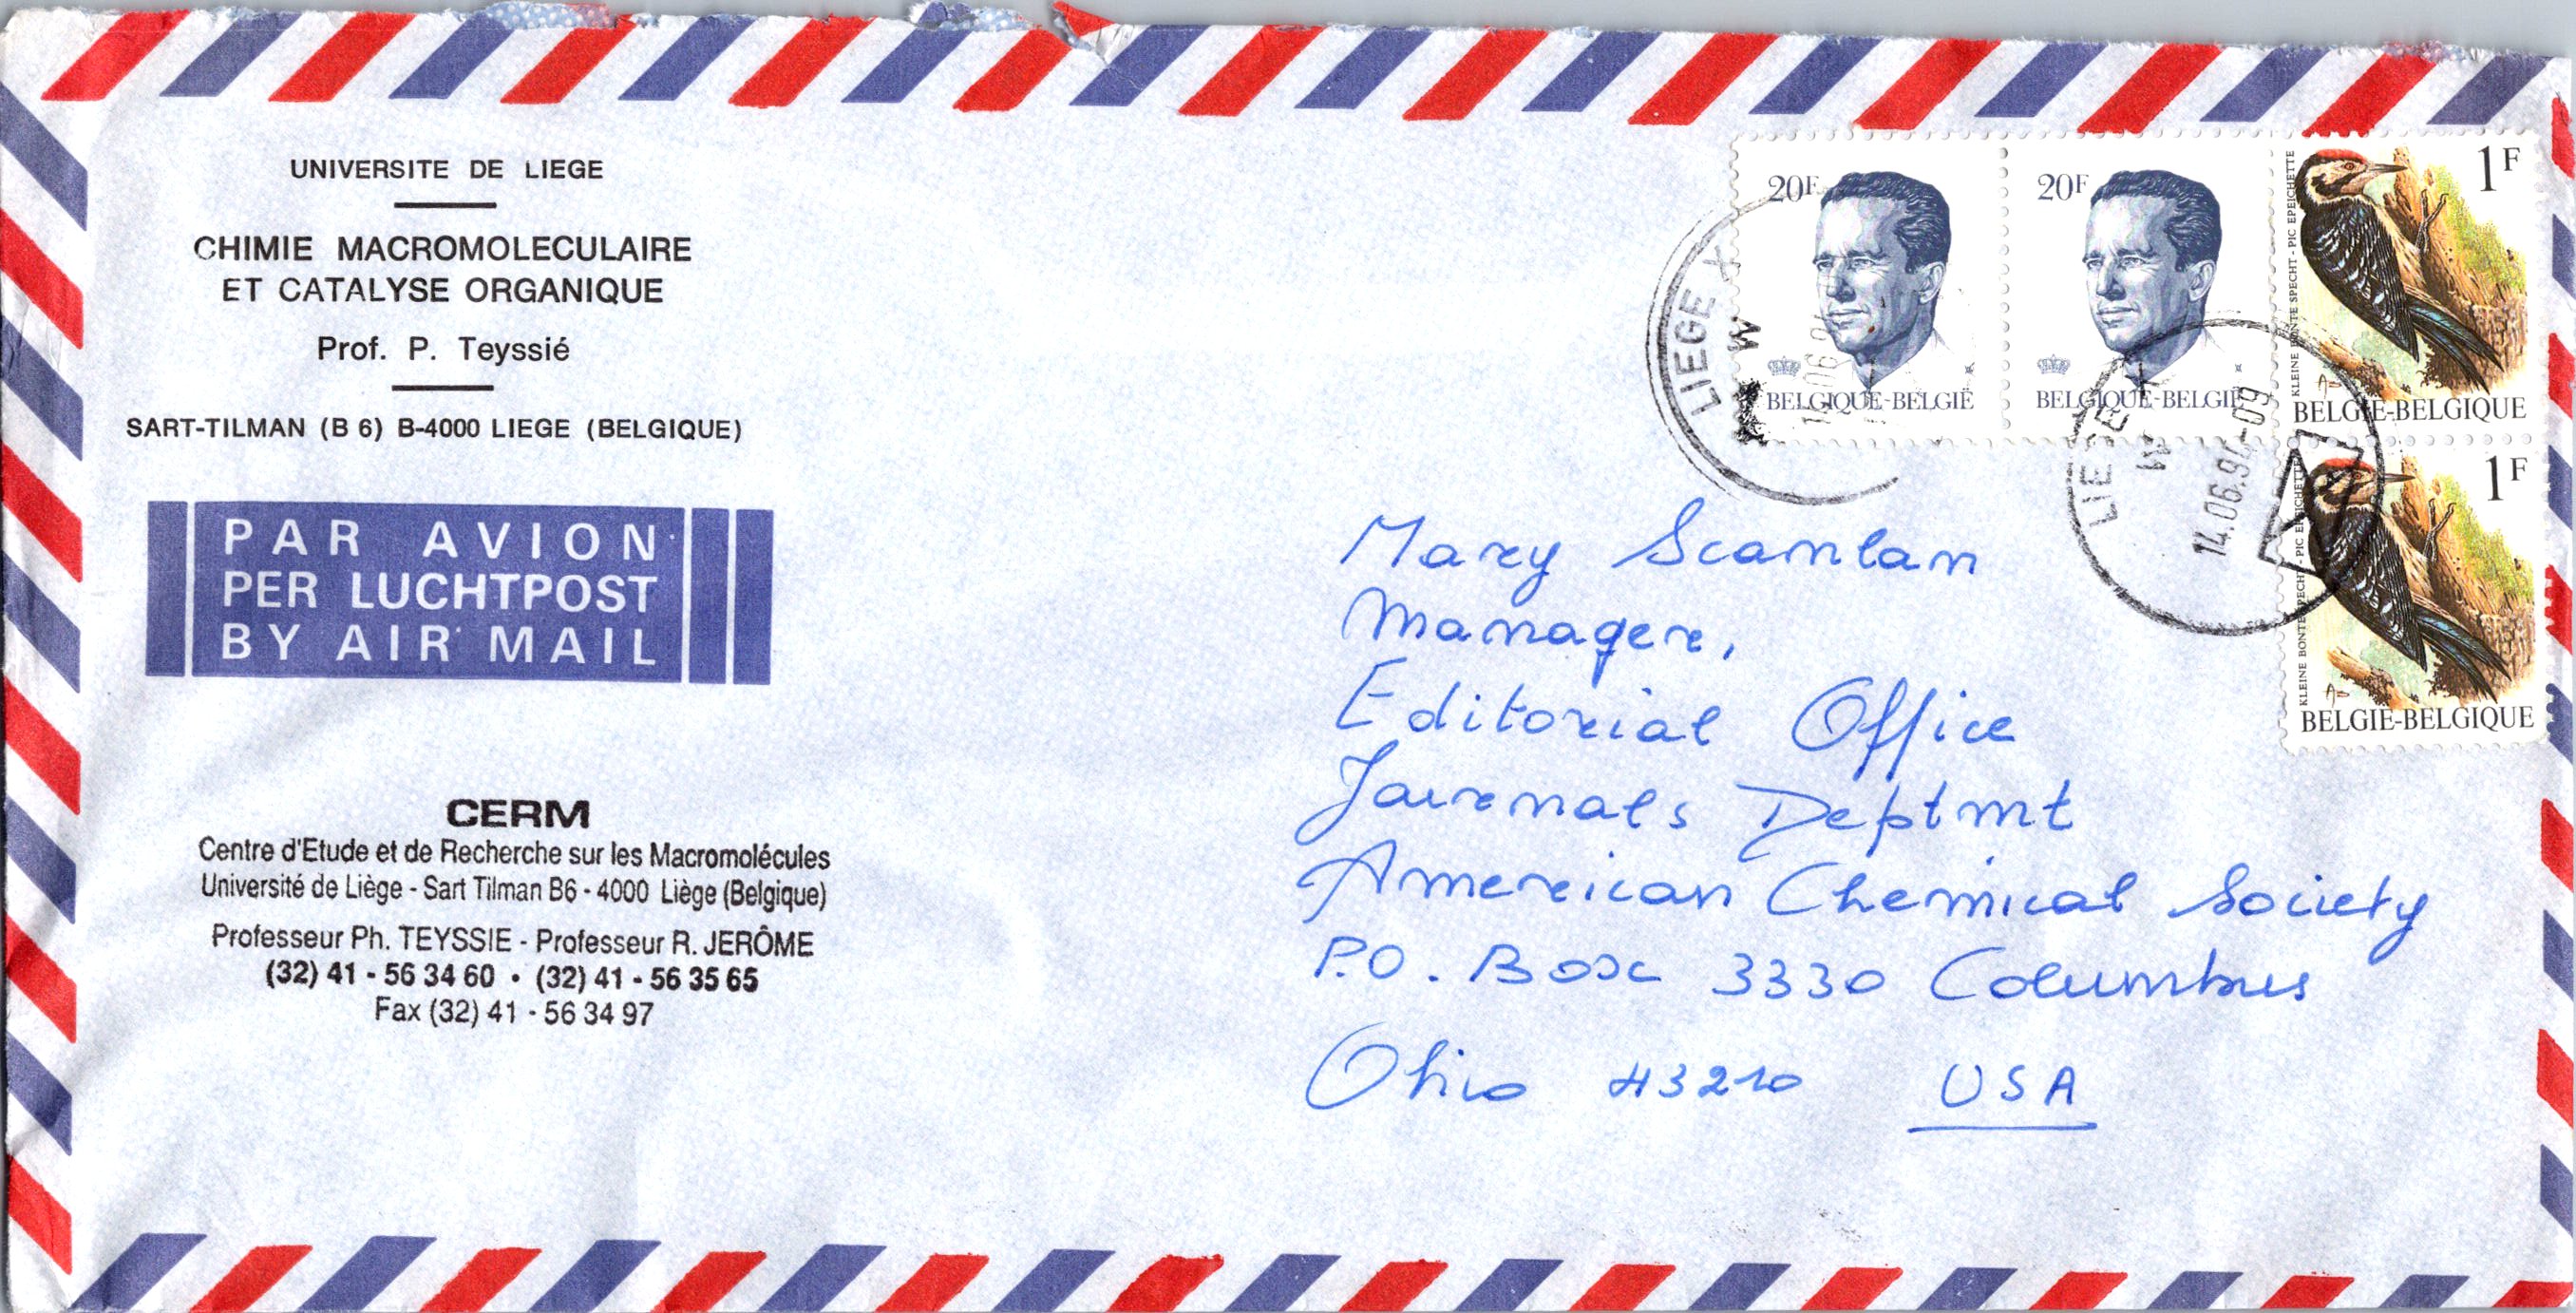 UNIVERSITE DE LIEGE
CHIMIE MACROMOLECULAIRE
ET CATALYSE ORGANIQUE
Prof. P. Teyssié
SART-TILMAN (B 6) B-4000 LIEGE (BELGIQUE)
PAR AVION
PER LUCHTPOST
BY AIR MAIL
CERM
Centre d'Etude et de Recherche sur les Macromolécules
Université de Liège - Sart Tilman B6 - 4000 Liège (Belgique)
Professeur Ph. TEYSSIE - Professeur R. JERÔME
(32) 41 - 56 34 60 • (32) 41 - 56 35 65
Fax (32) 41 - 56 34 97
20F
BELGIQUE-BELGIË
20F
BELGIQUE-BELGIË
1F
KLEINE BONTE SPECHT - PIC EPEICHETTE
BELGIE-BELGIQUE
1F
KLEINE BONTE SPECHT - PIC EPEICHETTE
BELGIE-BELGIQUE
LIEGE X
M
LIEGE X
M
14.06.94-09
A
Mary Scanlan
Manager,
Editorial Office
Journals Deptmt
American Chemical Society
P.O. Box 3330 Columbus
Ohio 43210 USA